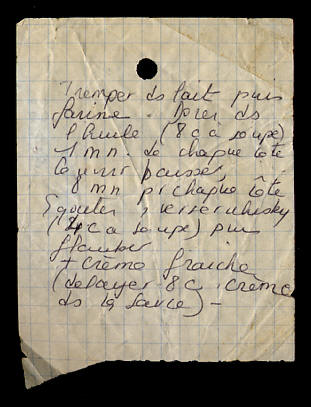 Tremper ds lait puis
farine. Dorer ds
l'huile (8 c à soupe)
1 mn. de chaque côté
Couvrir baisser,
8 mn pr chaque côté
Egouter, verser whisky
(4 c à soupe) puis
flamber
+ crème fraiche
(delayer 8 c. crème
ds la sauce) -